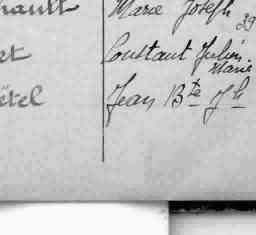 hault Marie Joseph 29
et Constant Julien
Marie
étel Jean Bte Jh